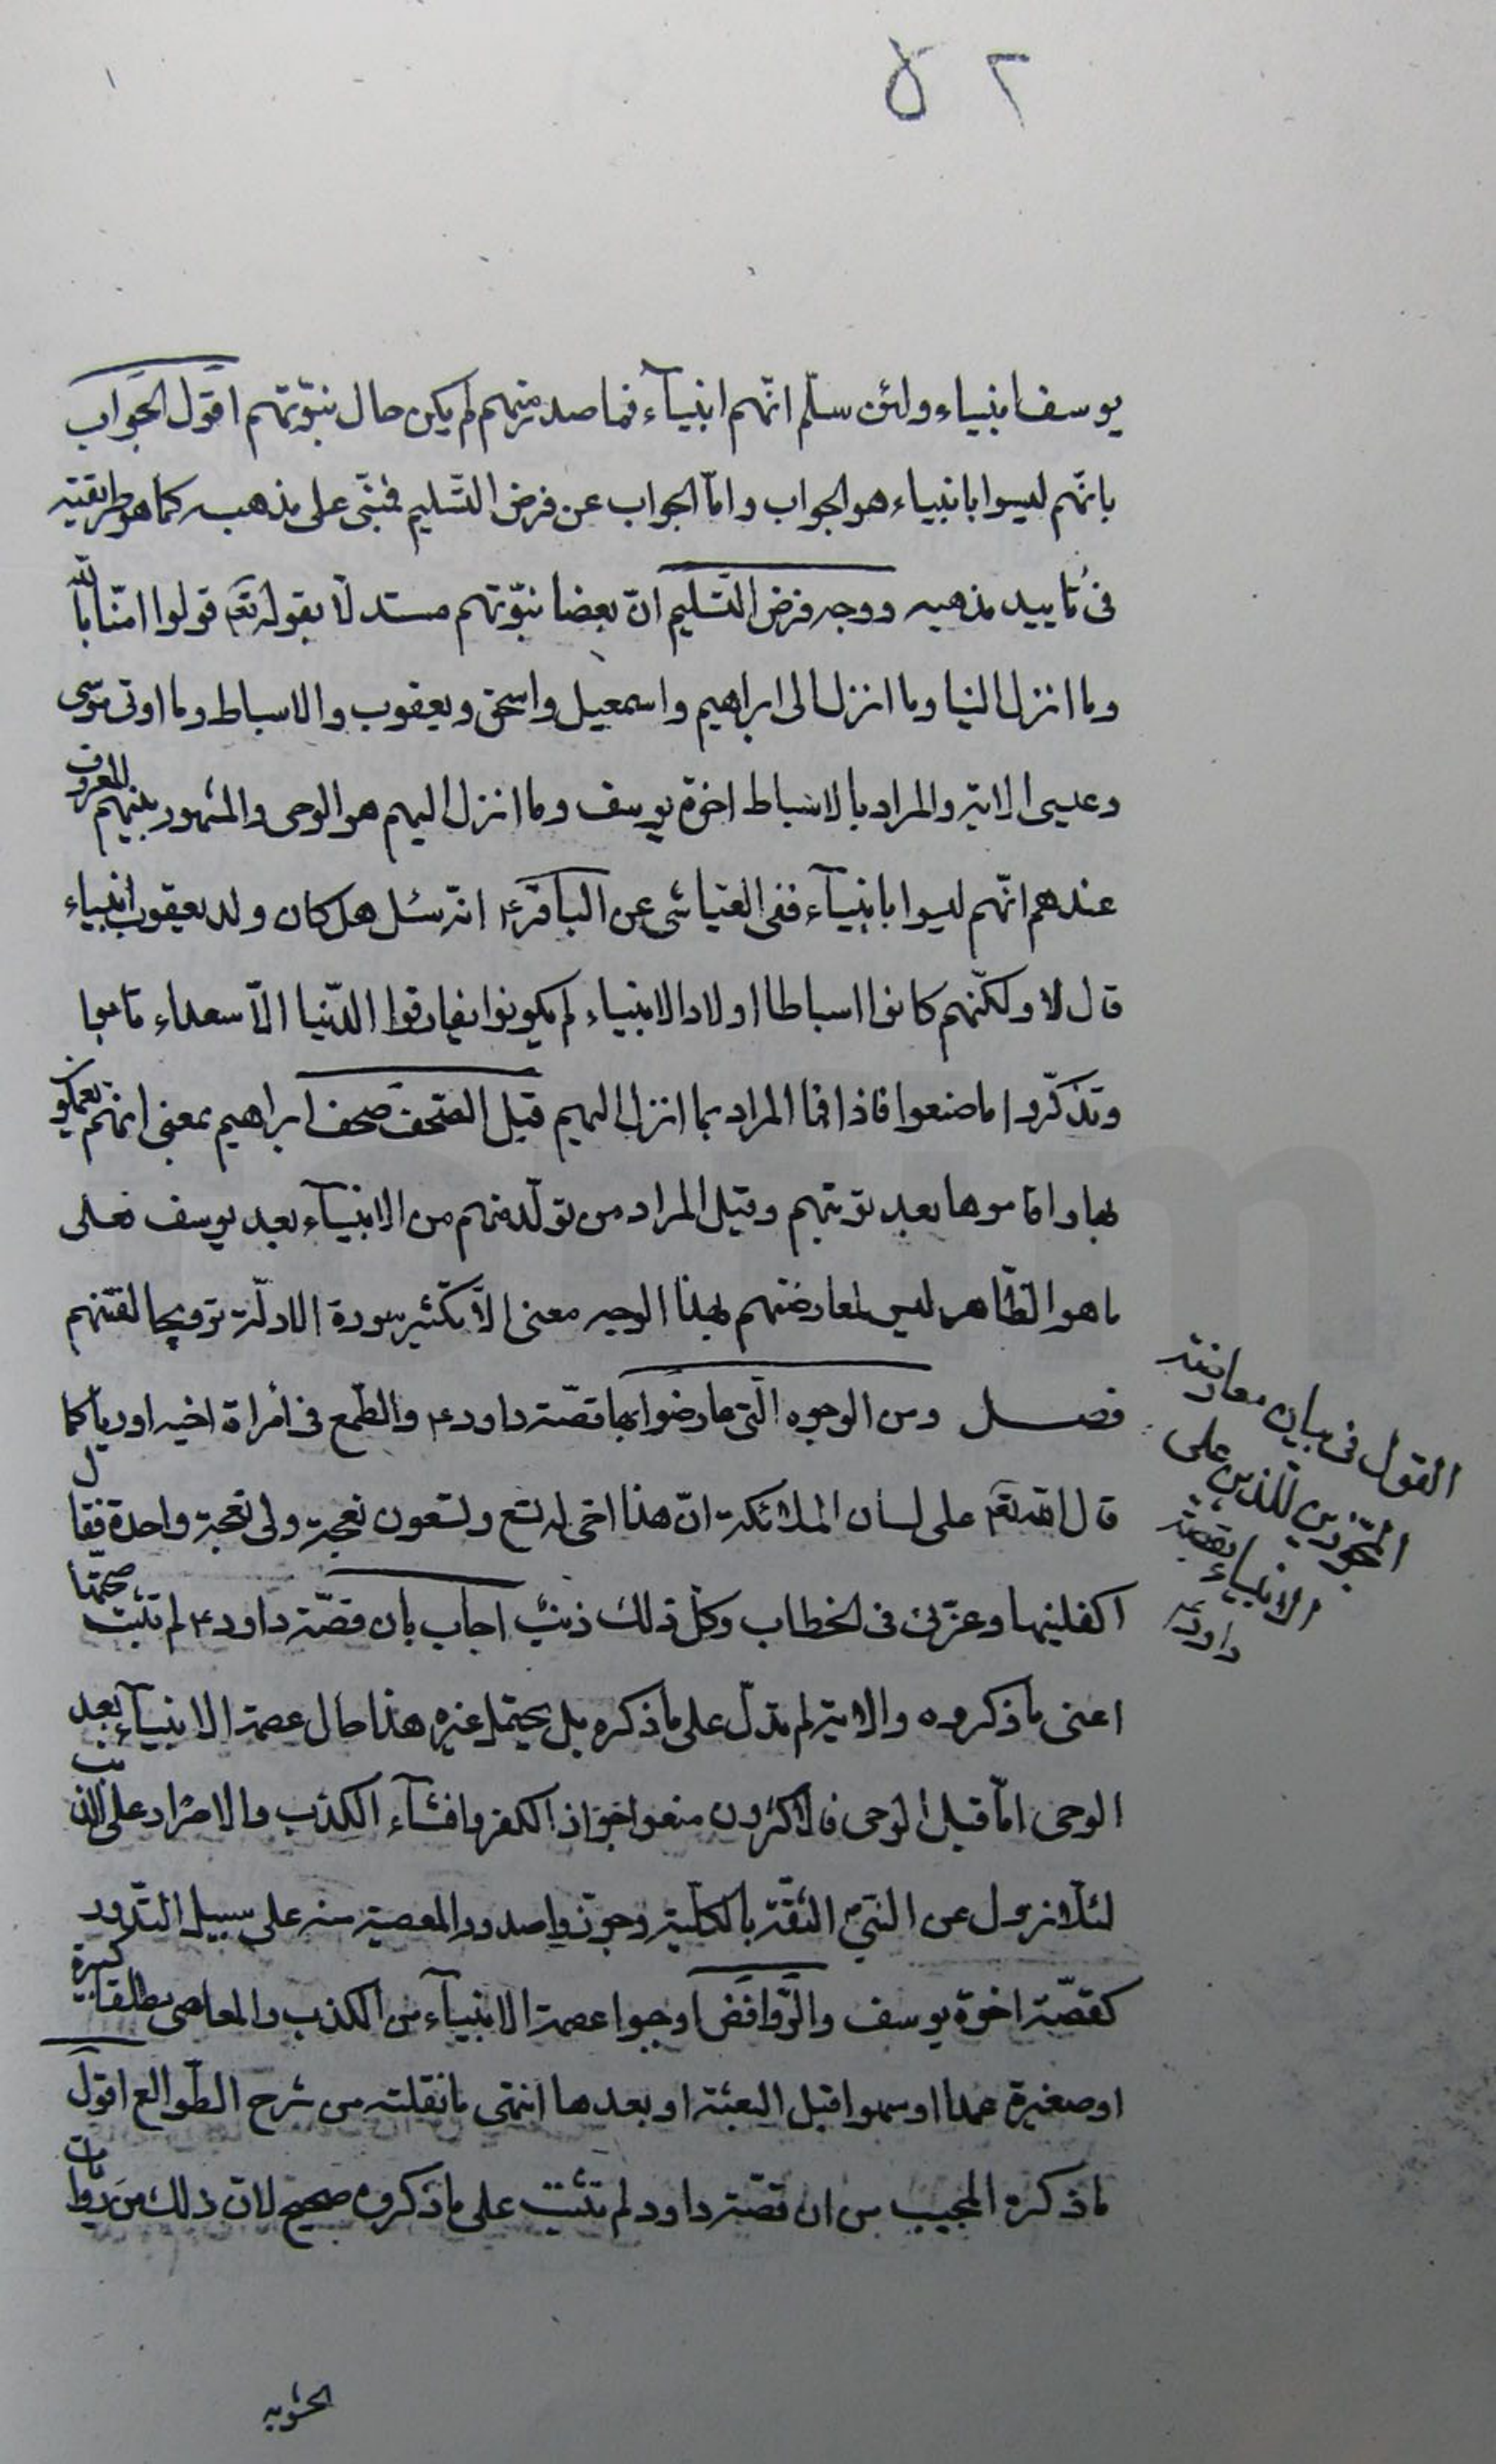 ٥٢
يوسف انبياء ولئن سلّم انّهم انبيآء فما صدر منهم لم يكن حال نبوّتهم اقول الجواب
بانّهم ليسوا بانبياء هو الجواب وامّا الجواب عن فرض التّسليم فمبنّى على مذهبه كما هو طريقته
فى تاييد مذهبه ووجه فرض التّسليم انّ بعضا نبوّتهم مستدلّا بقوله تع قولوا امنّا بالله
وما انزل الينا وما انزل الى ابراهيم واسمعيل واسحق ويعقوب والاسباط وما اوتى موسى
وعيسى الاية والمراد بالاسباط اخوة يوسف وما انزل اليهم هو الوحى والمشهور بينهم المعروف
عندهم انّهم ليسوا بانبيآء ففى العياشى عن الباقرع انه سئل هل كان ولد يعقوب انبياء
قال لا ولكنّهم كانوا اسباطا اولاد الانبياء لم يكونوا يفارقوا الدّنيا الّا سعداء تابوا
وتذكّروا ما صنعوا فاذا فما المراد بما انزل اليهم قيل الصّحف صحف ابراهيم بمعنى انهم يعملون
بها واقاموها بعد توبتهم وقيل المراد من تولّد منهم من الانبيآء بعد يوسف فعلى
ما هو الظّاهر ليس لمعارضتهم بهذا الوجه معنى الّا تكثير سورة الادلّة ترويجا لفتنهم
فصل ومن الوجوه الّتى عارضوا بها قصّة داودع والطّمع فى امراة اخيه اوريا كما
قال الله تع على لسان الملائكة انّ هذا اخى له تسع وتسعون نعجة ولى نعجة واحدة فقال
اكفلنيها وعزّنى فى الخطاب وكلّ ذلك ذنب اجاب بان قصّة داودع لم تثبت صحّتها
اعنى ما ذكروه والاية لم تدلّ على ما ذكره بل يحتمل غيره هذا حال عصمة الانبيآء بعد
الوحى امّا قبل الوحى فالاكثرون منعوا جواز الكفر وافشآء الكذب والاصرار على الذنب
لئلّا تزول عن النبيّ الثقّة بالكلّية وجوّزوا صدور المعصية منه على سبيل النّدور
كقصّة اخوة يوسف والرّوافض اوجبوا عصمة الانبيآء من الكذب والمعاصى مطلقا كبيرة
او صغيرة عمدا او سهوا قبل البعثة او بعدها انتهى ما نقلته من شرح الطّوالع اقول
ما ذكره المجيب من ان قصّة داود لم تثبت على ما ذكروه صحيح لانّ ذلك من روايات
الحشوية
القول فى بيان معارضة
المجّوزين للذنب على
الانبياء بقصّة
داودع